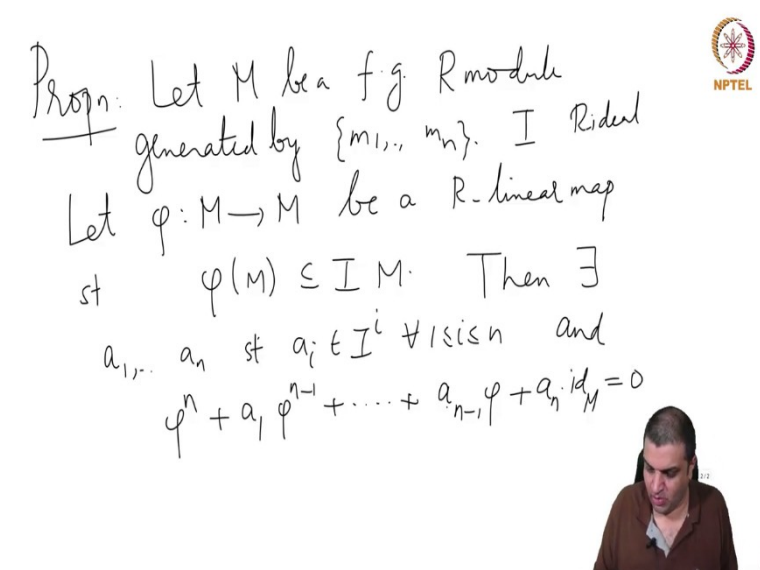 Propn: Let M be a f.g. R module
generated by {m1,.., mn}. I R ideal
Let φ: M → M be a R-linear map
st φ(M) ⊆ I M. Then ∃
a1,.. an st ai ∈ I^i ∀ 1≤i≤n and
φ^n + a1 φ^{n-1} + ..... + a_{n-1} φ + an. id_M = 0
NPTEL
2/2